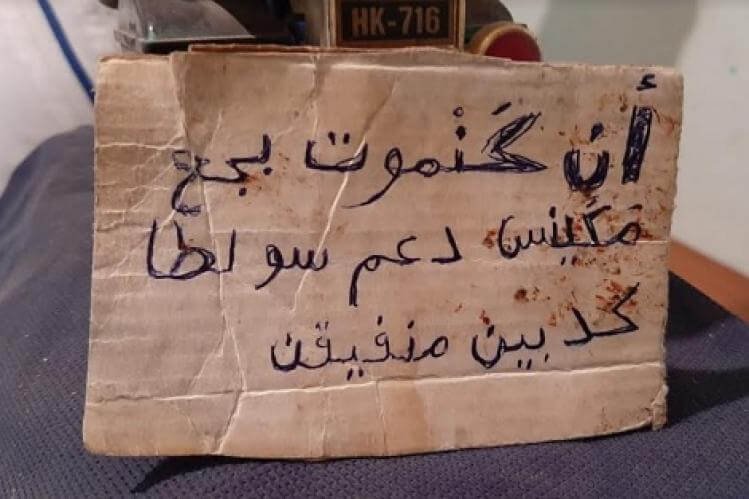 HK-716
أنا گنموت بجع
مكينس دعم سولطا
كدبين منفيقن